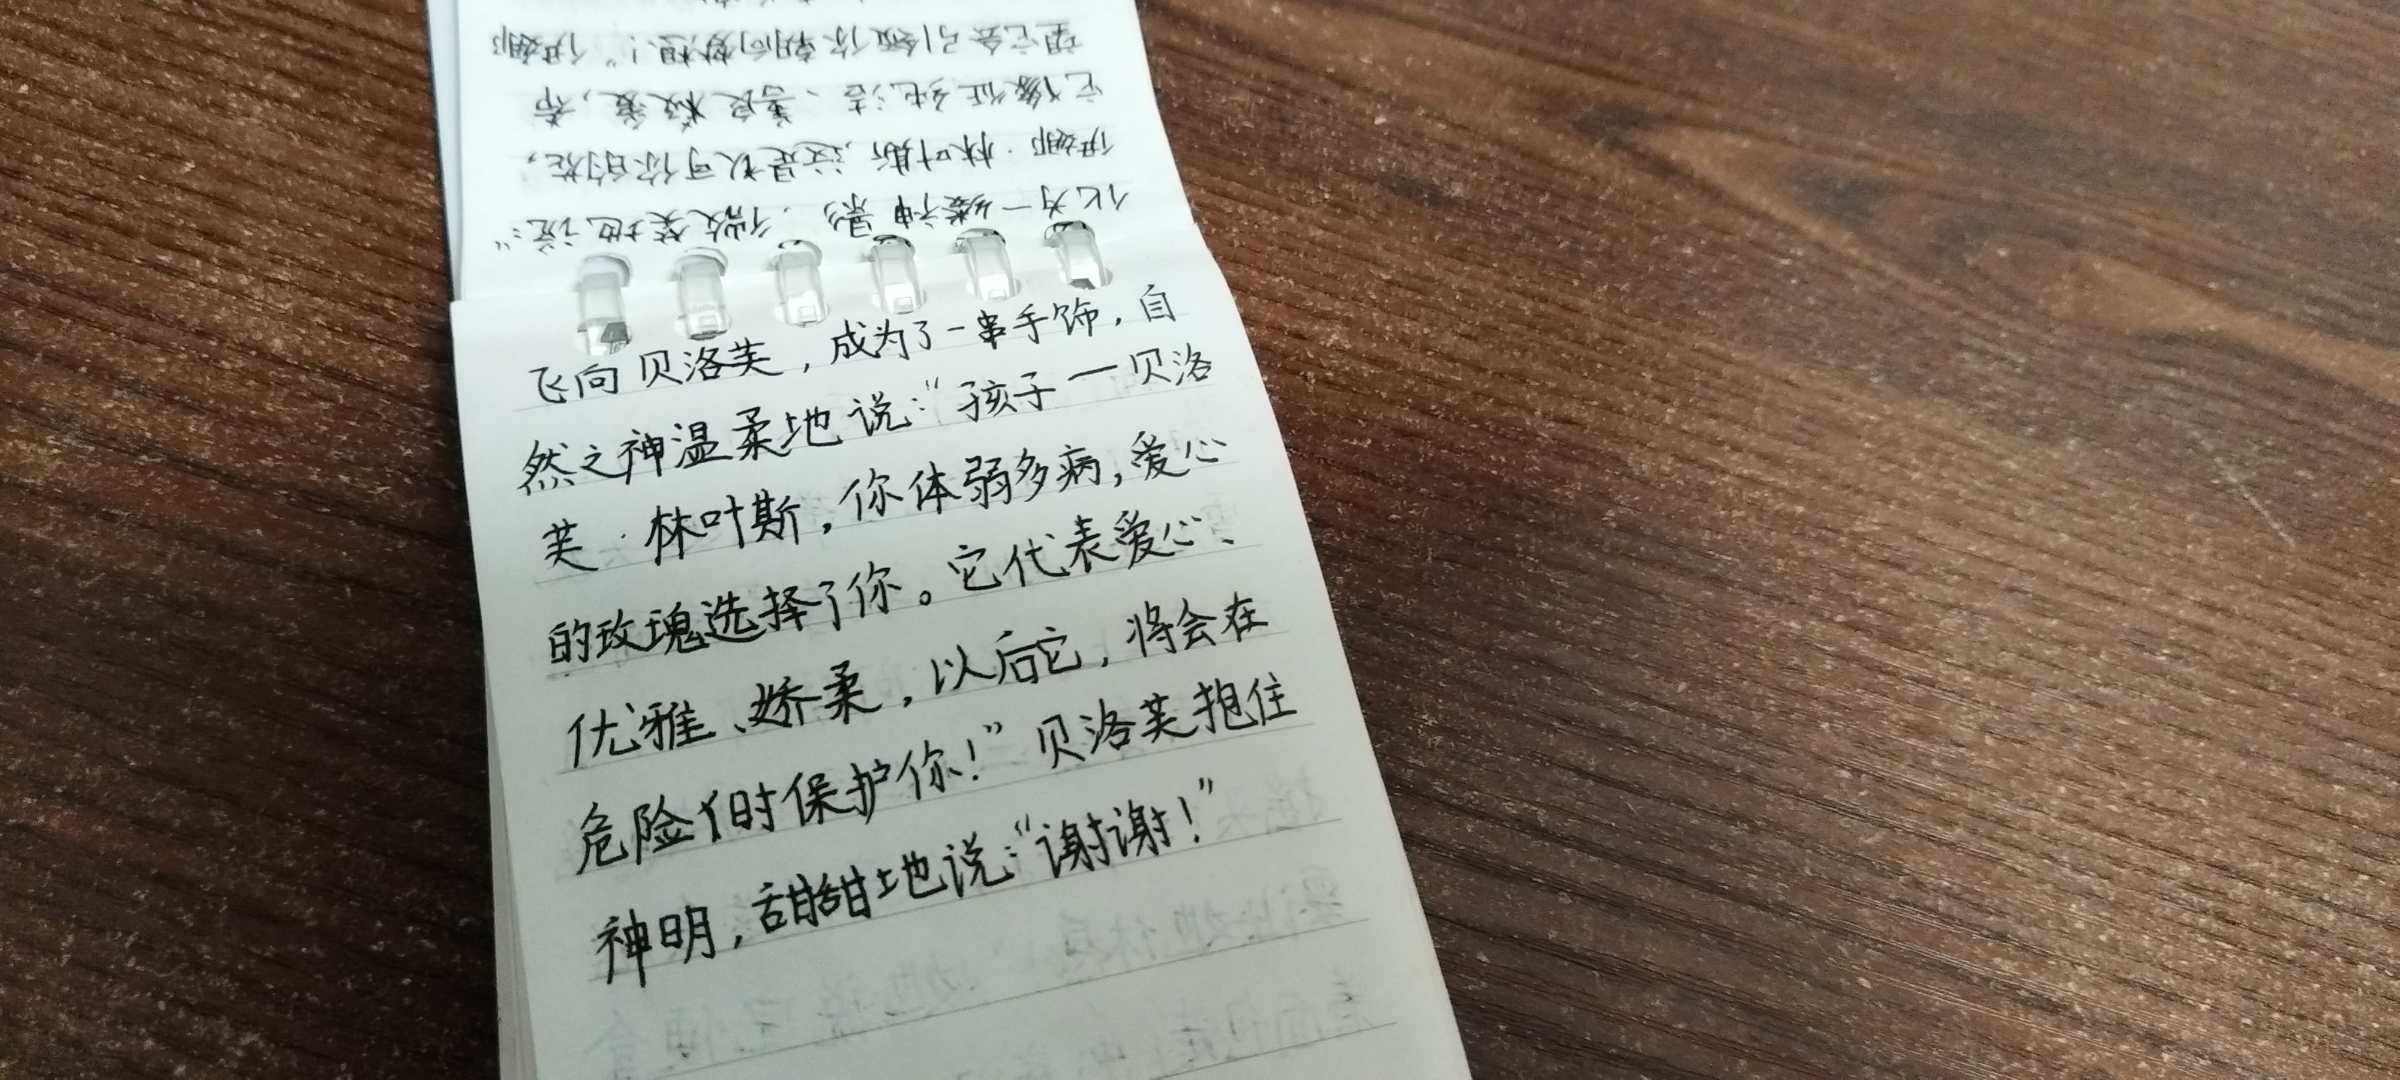 化为一缕神影,微笑地说:“
伊娜·林叶斯,这是认可你的花,
它像征纯洁、善良和爱,希
望它会引领你朝向梦想!”伊娜
飞向贝洛芙,成为了一串手饰,自
然之神温柔地说:“孩子一贝洛
芙·林叶斯,你体弱多病,爱心
的玫瑰选择了你。它代表爱心、
优雅、娇柔,以后它,将会在
危险时保护你!”贝洛芙抱住
神明,甜甜地说:“谢谢!”